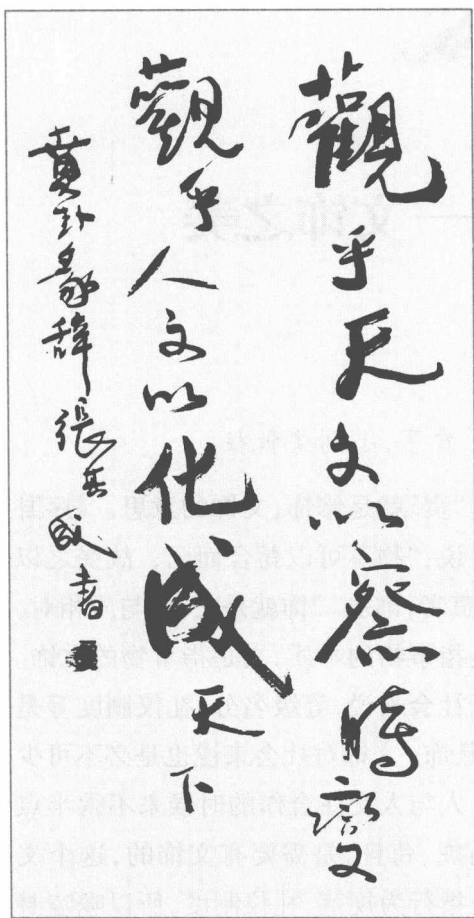 觀乎天文以察時變
觀乎人文以化成天下
賁卦彖辭張其成書